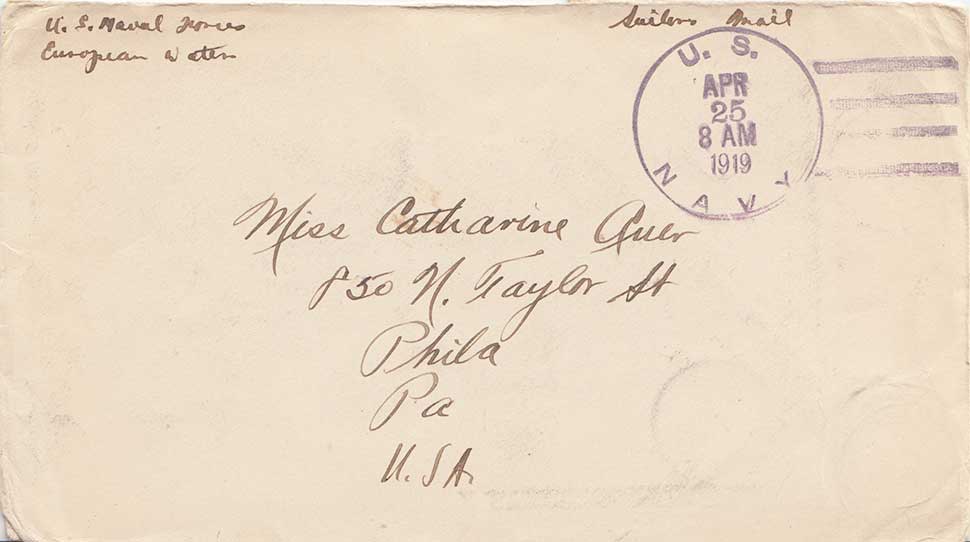 U. S. Naval Forces
European Waters
Sailors Mail
U. S.
APR
25
8 AM
1919
NAVY
Miss Catharine Auer
850 N. Taylor St
Phila
Pa
U.S.A.